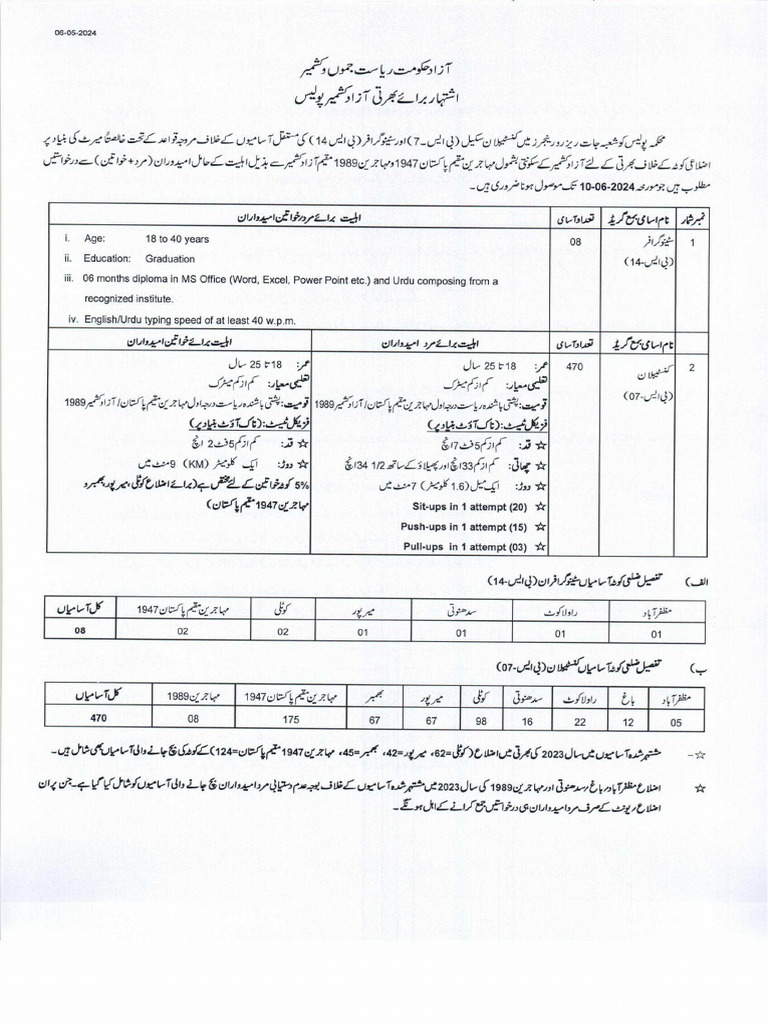 06-05-2024
آزاد حکومت ریاست جموں و کشمیر
اشتہار برائے بھرتی آزاد کشمیر پولیس
محکمہ پولیس کو شعبہ جات ریزرو رینجرز میں کنسٹیبلان سکیل (بی ایس۔7) اور سٹینوگرافر (بی ایس 14) کی مستقل آسامیوں کے خلاف مروجہ قواعد کے تحت خالصتاً میرٹ کی بنیاد پر
اضلاعی کوٹہ کے خلاف بھرتی کے لئے آزاد کشمیر کے سکونتی بشمول مہاجرین مقیم پاکستان 1947 و مہاجرین 1989 مقیم آزاد کشمیر سے بذیل اہلیت کے حامل امیدوران (مرد + خواتین) سے درخواستیں
مطلوب ہیں جو مورخہ 10-06-2024 تک موصول ہونا ضروری ہیں۔
نمبر شمار نام اسامی بمع گریڈ تعداد آسامی اہلیت برائے مرد/خواتین امیدواران
1 سٹینوگرافر (بی ایس-14) 08
i. Age: 18 to 40 years
ii. Education: Graduation
iii. 06 months diploma in MS Office (Word, Excel, Power Point etc.) and Urdu composing from a
recognized institute.
iv. English/Urdu typing speed of at least 40 w.p.m.
نام اسامی بمع گریڈ تعداد آسامی اہلیت برائے مرد امیدواران اہلیت برائے خواتین امیدواران
2 کنسٹیبلان (بی ایس-07) 470
عمر: 18 تا 25 سال
تعلیمی معیار: کم از کم میٹرک
قومیت: پشتنی باشندہ ریاست درجہ اول مہاجرین مقیم پاکستان/آزاد کشمیر 1989
فزیکل ٹیسٹ: (ناک آؤٹ بنیاد پر)
☆ قد: کم از کم 5 فٹ 7 انچ
☆ چھاتی: کم از کم 33 انچ اور پھیلاؤ کے ساتھ 34 1/2 انچ
☆ دوڑ: ایک میل (1.6 کلومیٹر) 7 منٹ میں
☆ Sit-ups in 1 attempt (20)
☆ Push-ups in 1 attempt (15)
☆ Pull-ups in 1 attempt (03)
عمر: 18 تا 25 سال
تعلیمی معیار: کم از کم میٹرک
قومیت: پشتنی باشندہ ریاست درجہ اول مہاجرین مقیم پاکستان/آزاد کشمیر 1989
فزیکل ٹیسٹ: (ناک آؤٹ بنیاد پر)
☆ قد: کم از کم 5 فٹ 2 انچ
☆ دوڑ: ایک کلومیٹر (KM) 9 منٹ میں
5% کوٹہ خواتین کے لئے مختص ہے (برائے اضلاع کوٹلی، میرپور، بھمبر و
مہاجرین 1947 مقیم پاکستان)
الف) تفصیل ضلعی کوٹہ آسامیاں سٹینوگرافران (بی ایس-14)
مظفرآباد راولاکوٹ سدھنوتی میرپور کوٹلی مہاجرین مقیم پاکستان 1947 کل آسامیاں
01 01 01 01 02 02 08
ب) تفصیل ضلعی کوٹہ آسامیاں کنسٹیبلان (بی ایس-07)
مظفرآباد باغ راولاکوٹ سدھنوتی کوٹلی میرپور بھمبر مہاجرین مقیم پاکستان 1947 مہاجرین 1989 کل آسامیاں
05 12 22 16 98 67 67 175 08 470
☆- مشتہر شدہ آسامیوں میں سال 2023 کی بھرتی میں اضلاع (کوٹلی=62، میرپور=42، بھمبر=45، مہاجرین 1947 مقیم پاکستان=124) کے کوٹہ کی بچ جانے والی آسامیاں بھی شامل ہیں۔
☆ اضلاع مظفرآباد، باغ، سدھنوتی اور مہاجرین 1989 کی سال 2023 میں مشتہر شدہ آسامیوں کے خلاف بوجہ عدم دستیابی مرد امیدواران بچ جانے والی آسامیوں کو شامل کیا گیا ہے۔ جن پر ان
اضلاع/یونٹ کے صرف مرد امیدواران ہی درخواستیں جمع کرانے کے اہل ہونگے۔